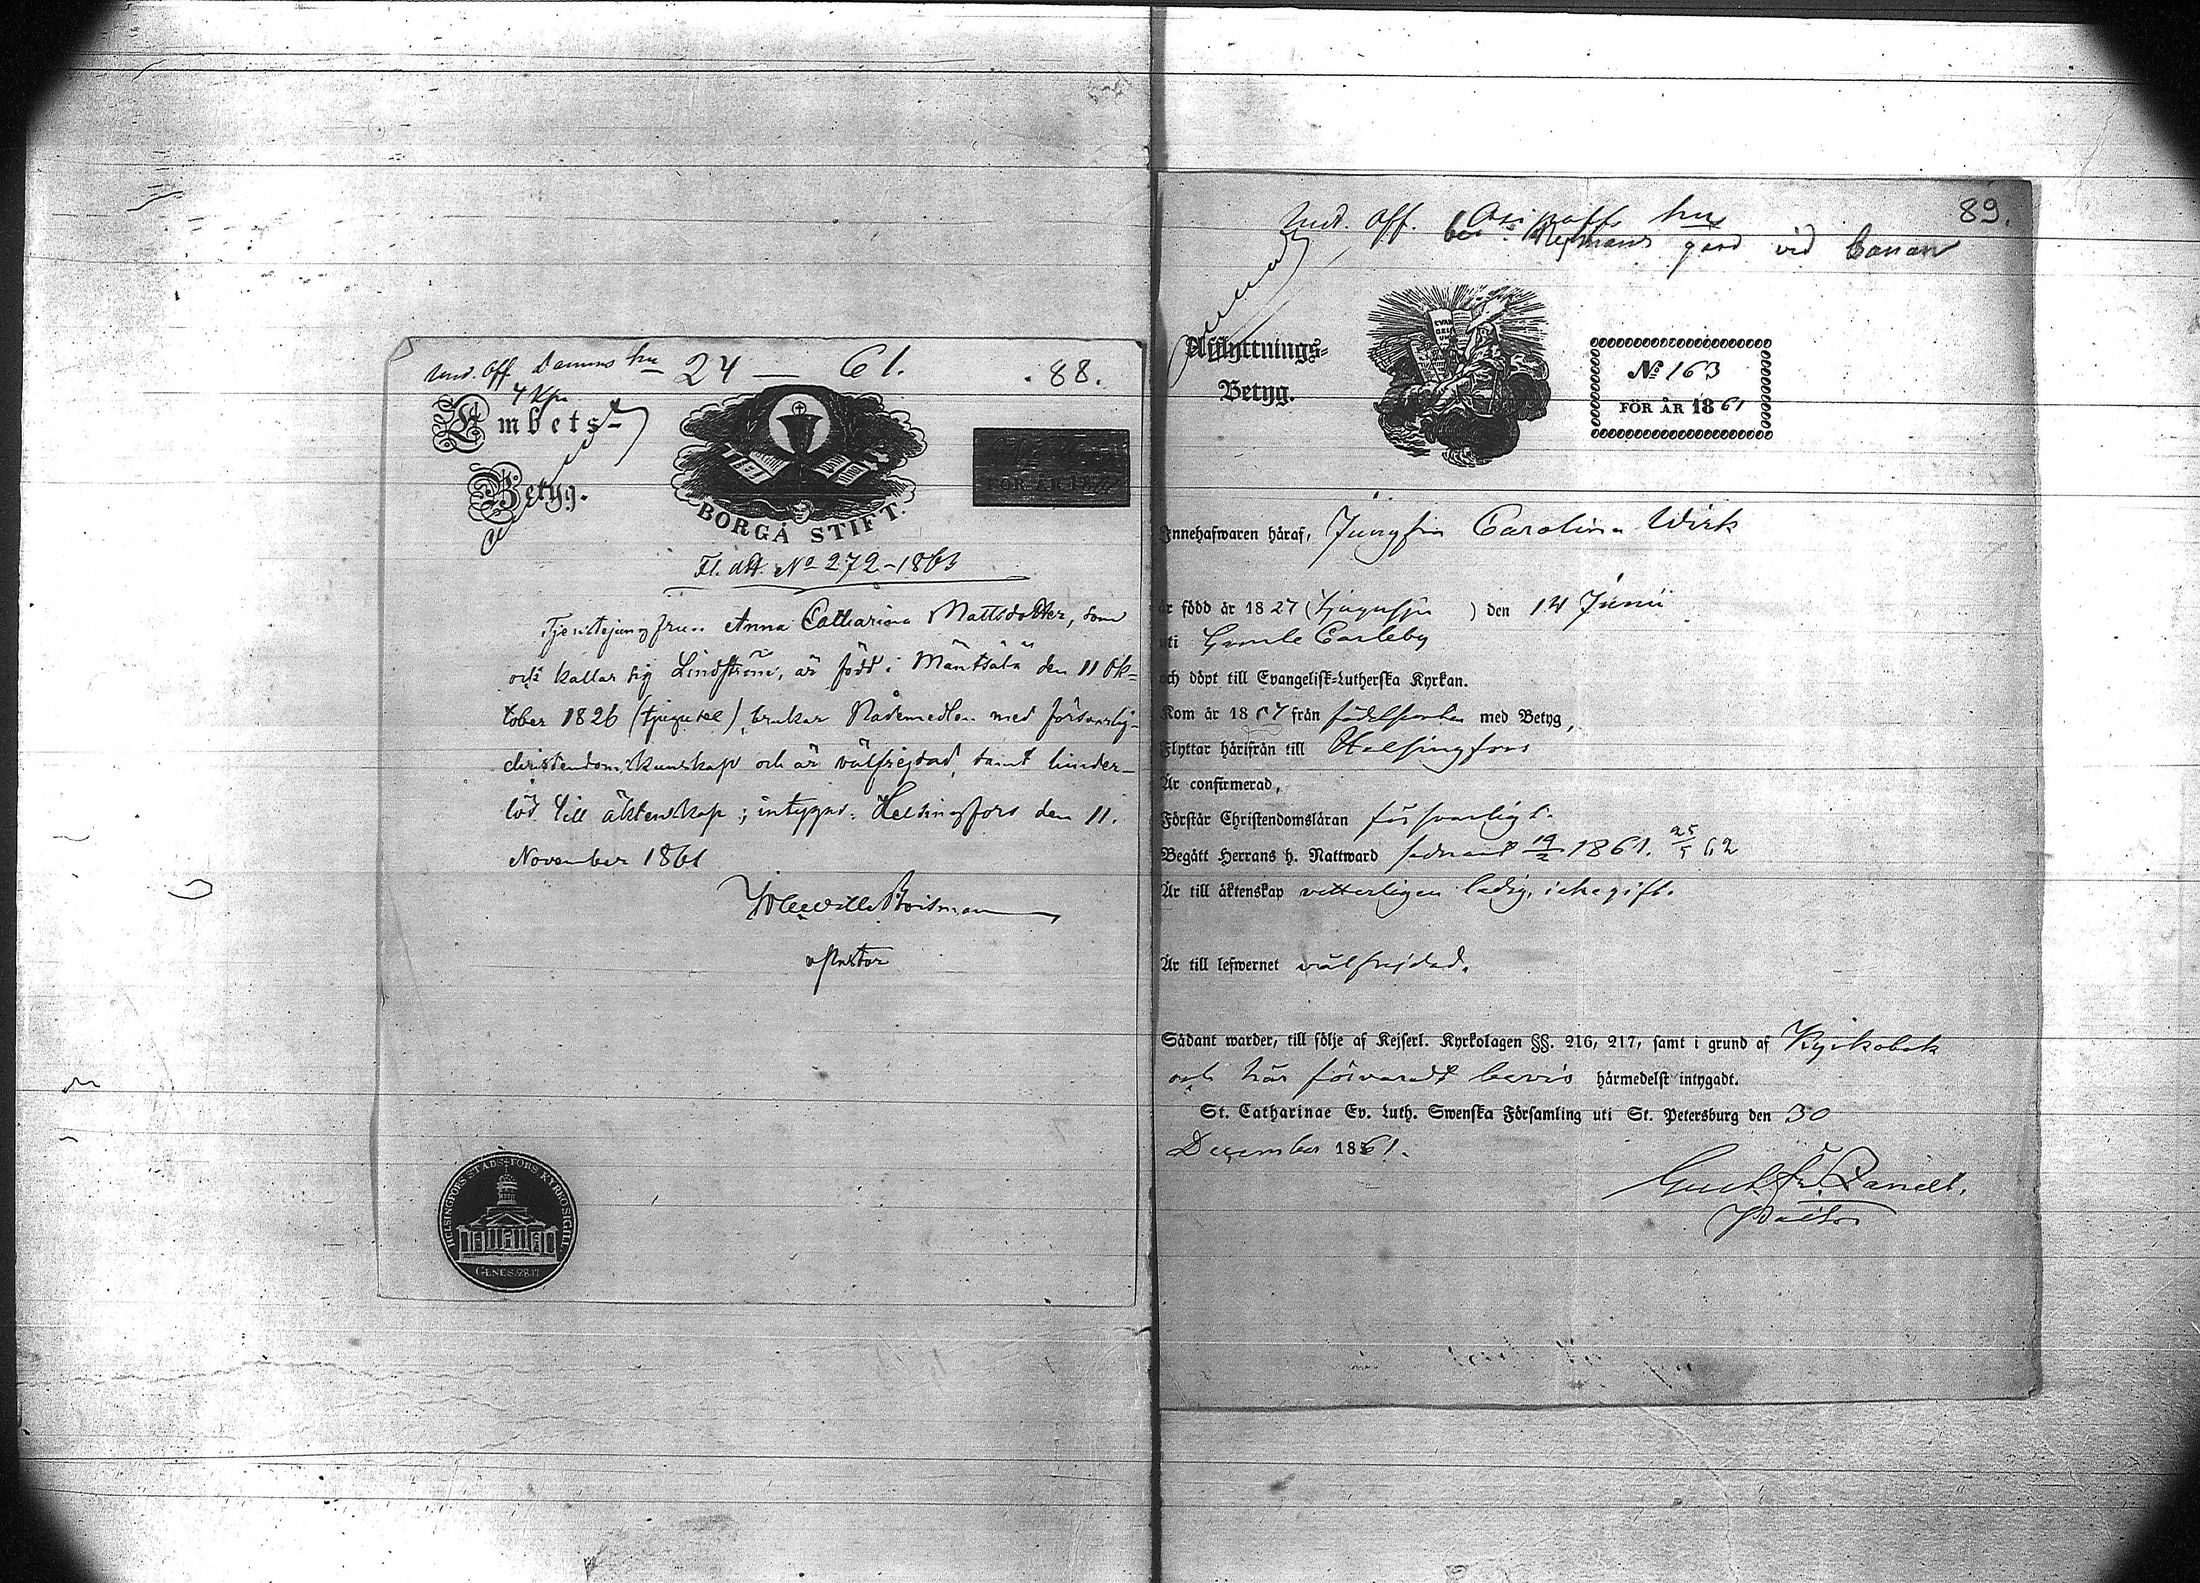 Und. Off. Damms hu 24 — 61. 88.
4 Kp.
Embets-
Betyg.
BORGÅ STIFT.
FÖR ÅR 18
Fl. att. No 272-1863
Tjenstejungfrun Anna Catharina Mattsdotter, som
och kallar sig Lindström, är född i Mäntsälä den 11 Ok-
tober 1826 (tjugusex), brukar Nådemedlen med försvarlig
christendomskunskap och är välfrejdad, samt hinder-
lös till äktenskap; intygas. Helsingfors den 11.
November 1861
Boisman
v Pastor
HELSINGFORS STADS-FÖRS KYRKOSIGILL
GENES. 28.17
89.
Und. Off. hu
gård vid
Afflyttnings-
Betyg.
EVAN
GELI
UM
No 163
FÖR ÅR 1861
Innehafwaren häraf, Jungfru Carolina Wirk
är född år 1827 (tjugusju) den 14 Junii
uti Gamle Carleby
och döpt till Evangelisk-Lutherska Kyrkan.
Kom år 18 från födelseorten med Betyg,
Flyttar härifrån till Helsingfors
Är confirmerad,
Förstår Christendomsläran försvarligt.
Begått Herrans h. Nattward sednast 19/2 1861. 25/5 62
Är till äktenskap vetterligen ledig, icke gift.
Är till lefwernet välfrejdad.
Sådant warder, till följe af Kejserl. Kyrkolagen §§. 216, 217, samt i grund af Kyrkobok
och här förvaradt bevis härmedelst intygadt.
St. Catharinae Ev. Luth. Swenska Församling uti St. Petersburg den 30
December 1861.
Gust. Fr. Zandt.
Pastor